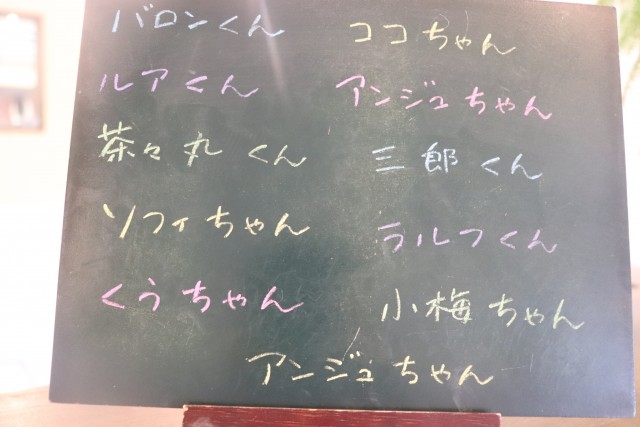 バロンくん
ココちゃん
ルアくん
アンジュちゃん
茶々丸くん
三郎くん
ソフィちゃん
ラルフくん
くうちゃん
小梅ちゃん
アンジュちゃん